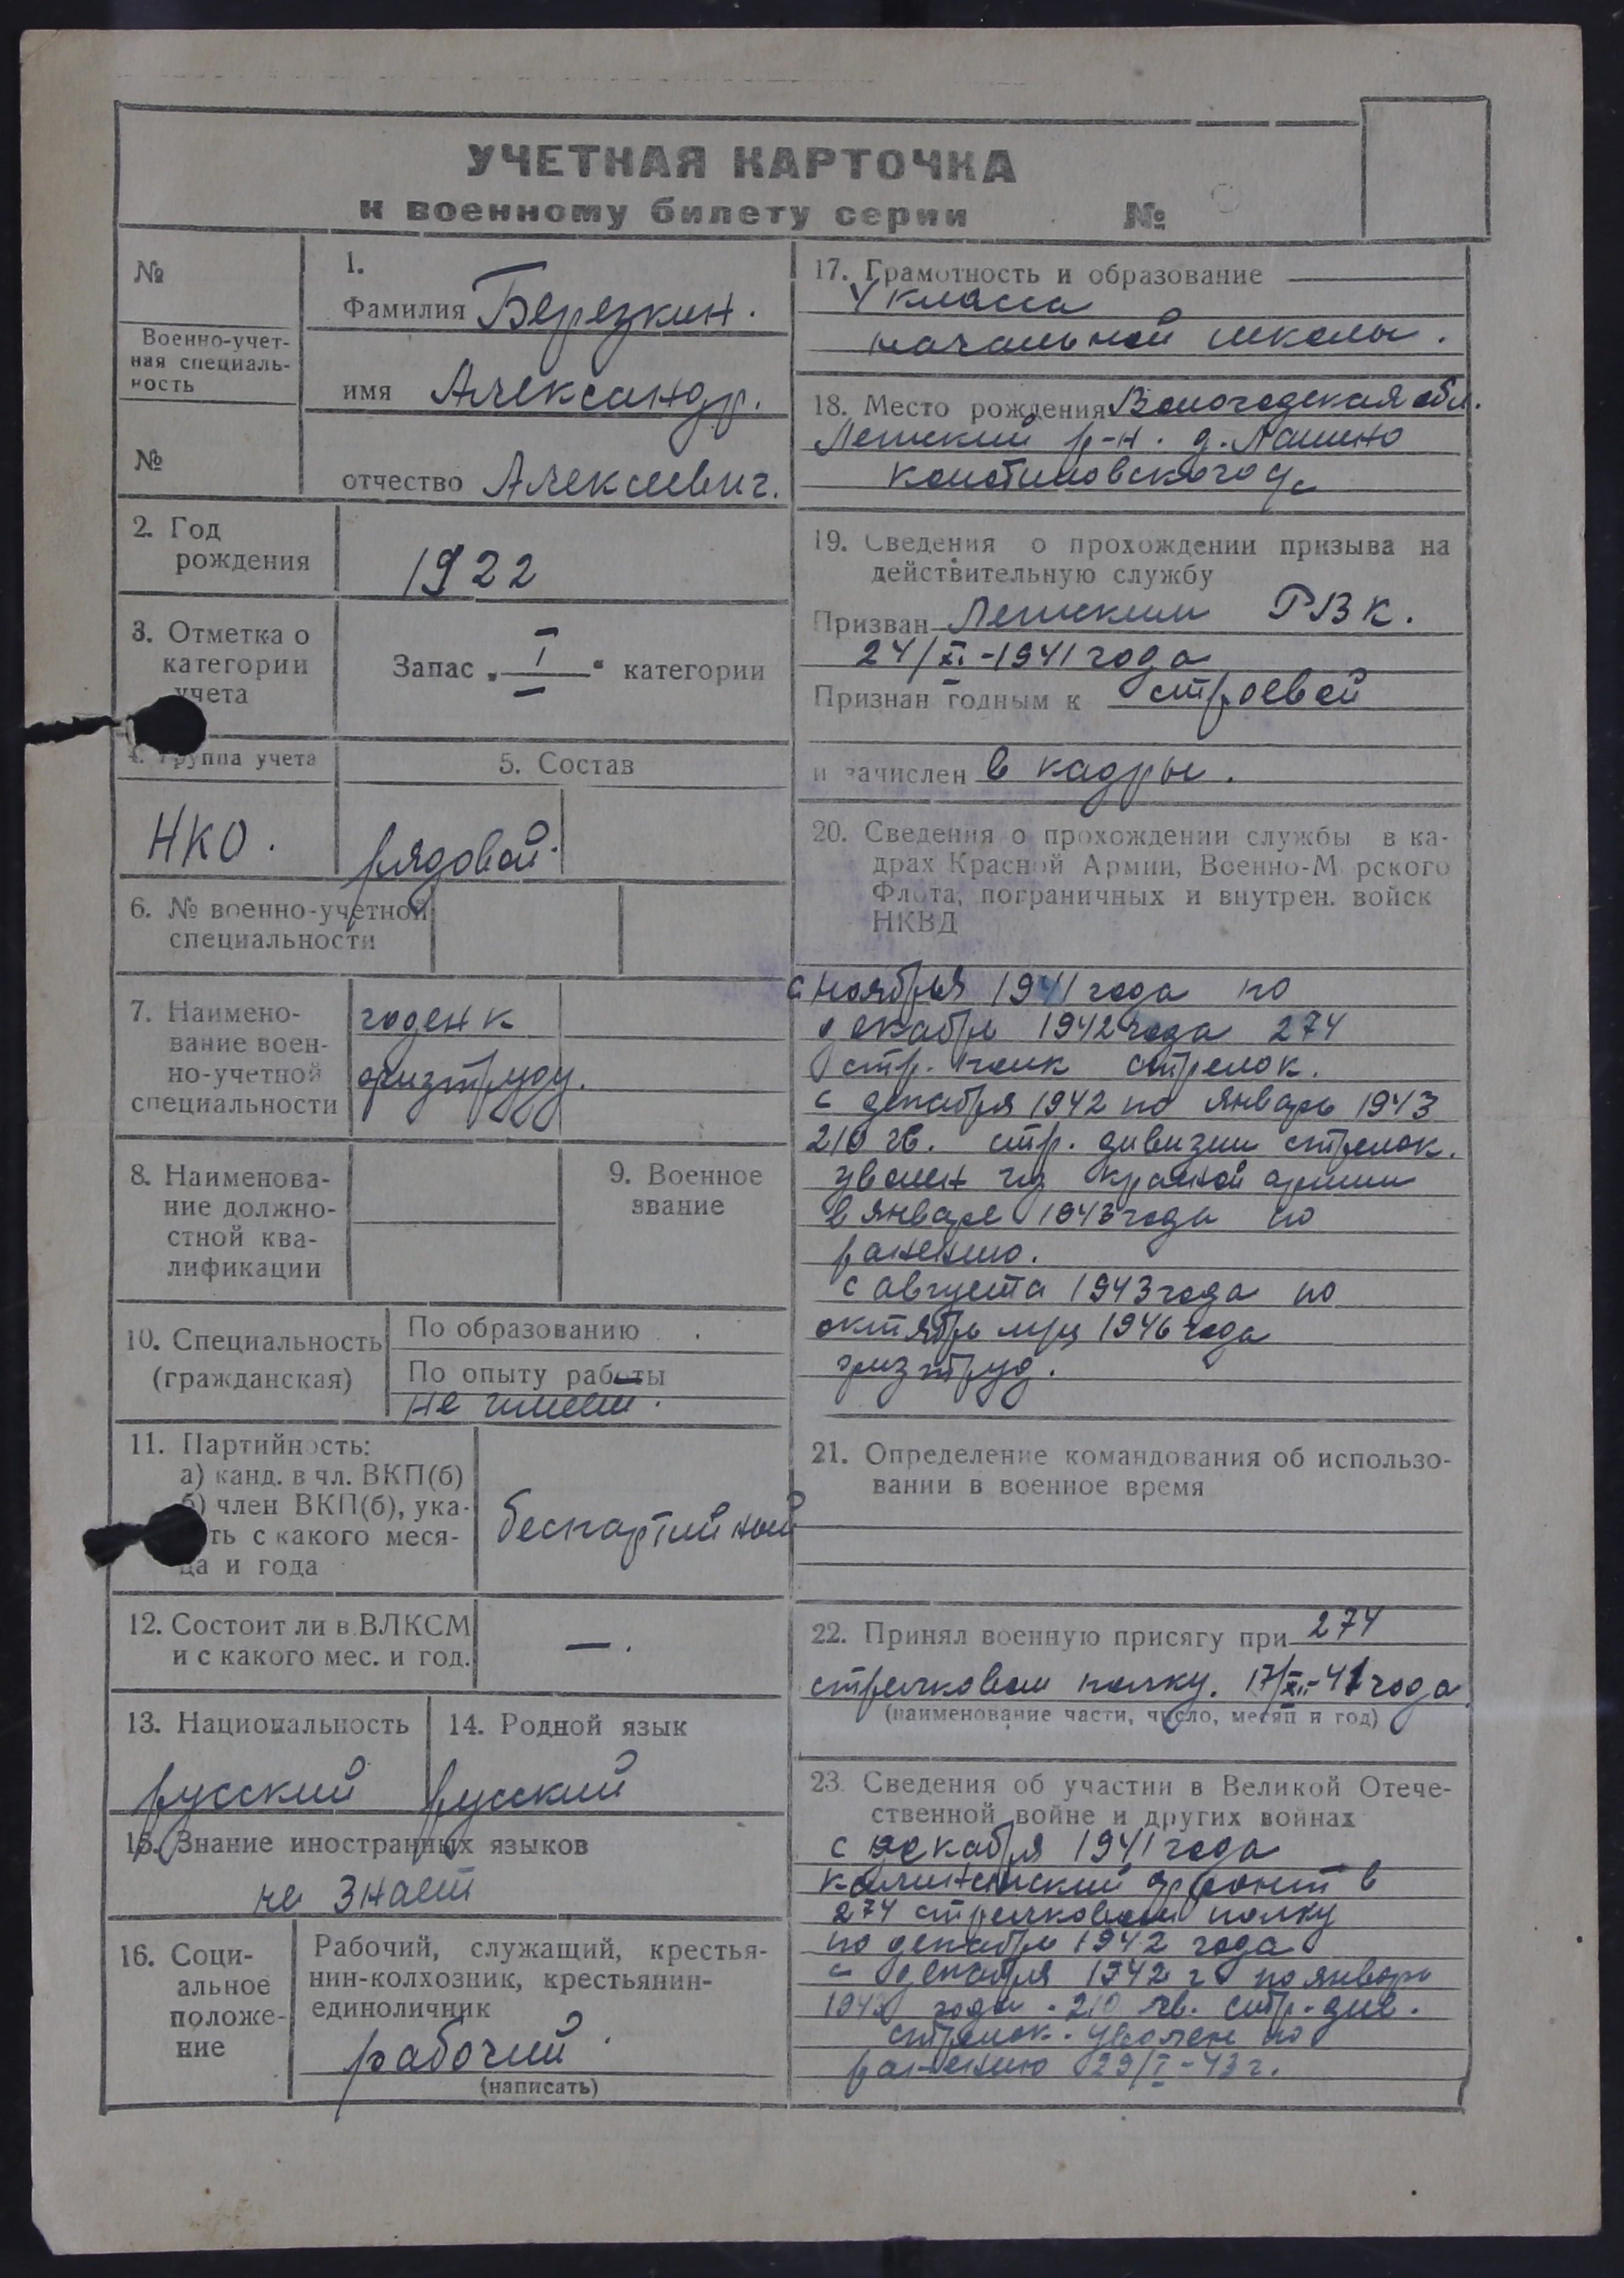 УЧЕТНАЯ КАРТОЧКА
к военному билету серии №
№
Военно-учет-
ная специаль-
ность
№
1.
Фамилия Березкин.
имя Александр.
отчество Алексеевич.
2. Год
рождения
1922
3. Отметка о
категории
учета
Запас „I“ категории
4. Группа учета
НКО.
5. Состав
рядовой.
6. № военно-учетной
специальности
7. Наимено-
вание воен-
но-учетной
специальности
годен к
физтруду.
8. Наименова-
ние должно-
стной ква-
лификации
9. Военное
звание
10. Специальность
(гражданская)
По образованию
По опыту работы
не имеет.
11. Партийность:
а) канд. в чл. ВКП(б)
б) член ВКП(б), ука-
ть с какого меся-
ца и года
беспартийный
12. Состоит ли в ВЛКСМ
и с какого мес. и год.
—.
13. Национальность
русский
14. Родной язык
русский
15. Знание иностранных языков
не знает
16. Соци-
альное
положе-
ние
Рабочий, служащий, крестья-
нин-колхозник, крестьянин-
единоличник
рабочий.
(написать)
17. Грамотность и образование
4 класса
начальной школы.
18. Место рождения Вологодская обл.
р-н. д.
19. Сведения о прохождении призыва на
действительную службу
Призван РВК.
24/XI-1941 года
Признан годным к строевой
и зачислен в кадры.
20. Сведения о прохождении службы в ка-
драх Красной Армии, Военно-М рского
Флота, пограничных и внутрен. войск
НКВД
с ноября 1941 года по
декабрь 1942 года 274
стр. полк стрелок.
с декабря 1942 по январь 1943
210 гв. стр. дивизии стрелок.
уволен из красной армии
в январе 1943 года по
ранению.
с августа 1943 года по
октябрь м-ц 1946 года
физтруд.
21. Определение командования об использо-
вании в военное время
22. Принял военную присягу при 274
стрелковом полку. 17/XII-41 года
(наименование части, число, месяц и год)
23. Сведения об участии в Великой Отече-
ственной войне и других войнах
с декабря 1941 года
калининский фронт в
274 стрелковом полку
по декабрь 1942 года
с декабря 1942 г по январь
1943 года. 210 гв. стр. див.
стрелок. уволен по
ранению 29/I-43 г.